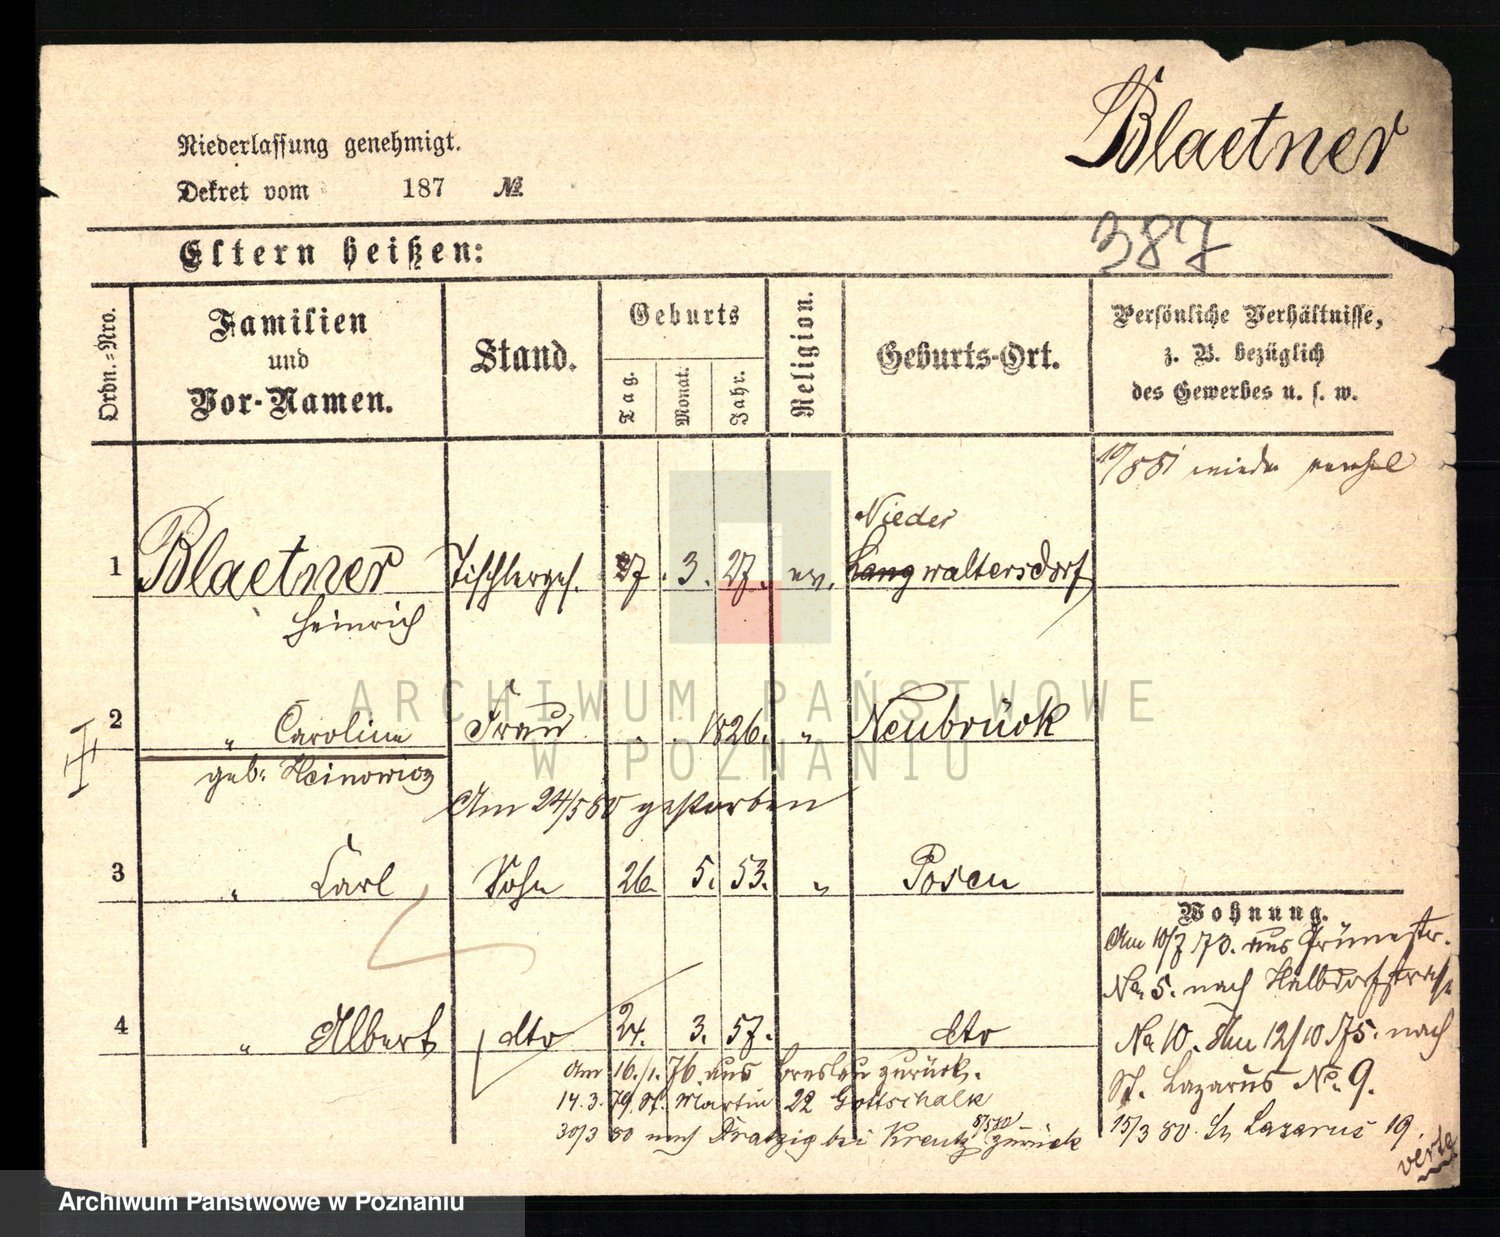 Blaetner
Niederlassung genehmigt.
Dekret vom 187 №
387
Eltern heißen:
Ordn.=Nro.
Familien
und
Vor-Namen.
Stand.
Geburts
Tag.
Monat.
Jahr.
Religion.
Geburts-Ort.
Persönliche Verhältnisse,
z. B. bezüglich
des Gewerbes u. s. w.
wieder
Nieder
1 Blaetner Tischlerges. 27. 3. 27. ev. Langwaltersdorf
Heinrich
2 " Caroline Frau . . 1826. " Neubrück
geb. Heinowicz
Am 24/5 80 gestorben
3 " Carl Sohn 26. 5. 53. " Posen
4 " Albert dto 24. 3. 57. dto
Am 16./1. 76. aus Breslau zurück.
14.3.79 St. Martin 22 Gottschalk
30/3 80 nach Dratzig bei Kreutz zurück
Wohnung.
Am 10/7 73. aus Grünestr.
No. 5. nach Halbdorfstrasse
No 10. Am 12/10 75. nach
St. Lazarus No. 9.
15/3 80. St Lazarus 19.
verte
ARCHIWUM PAŃSTWOWE
W POZNANIU
Archiwum Państwowe w Poznaniu